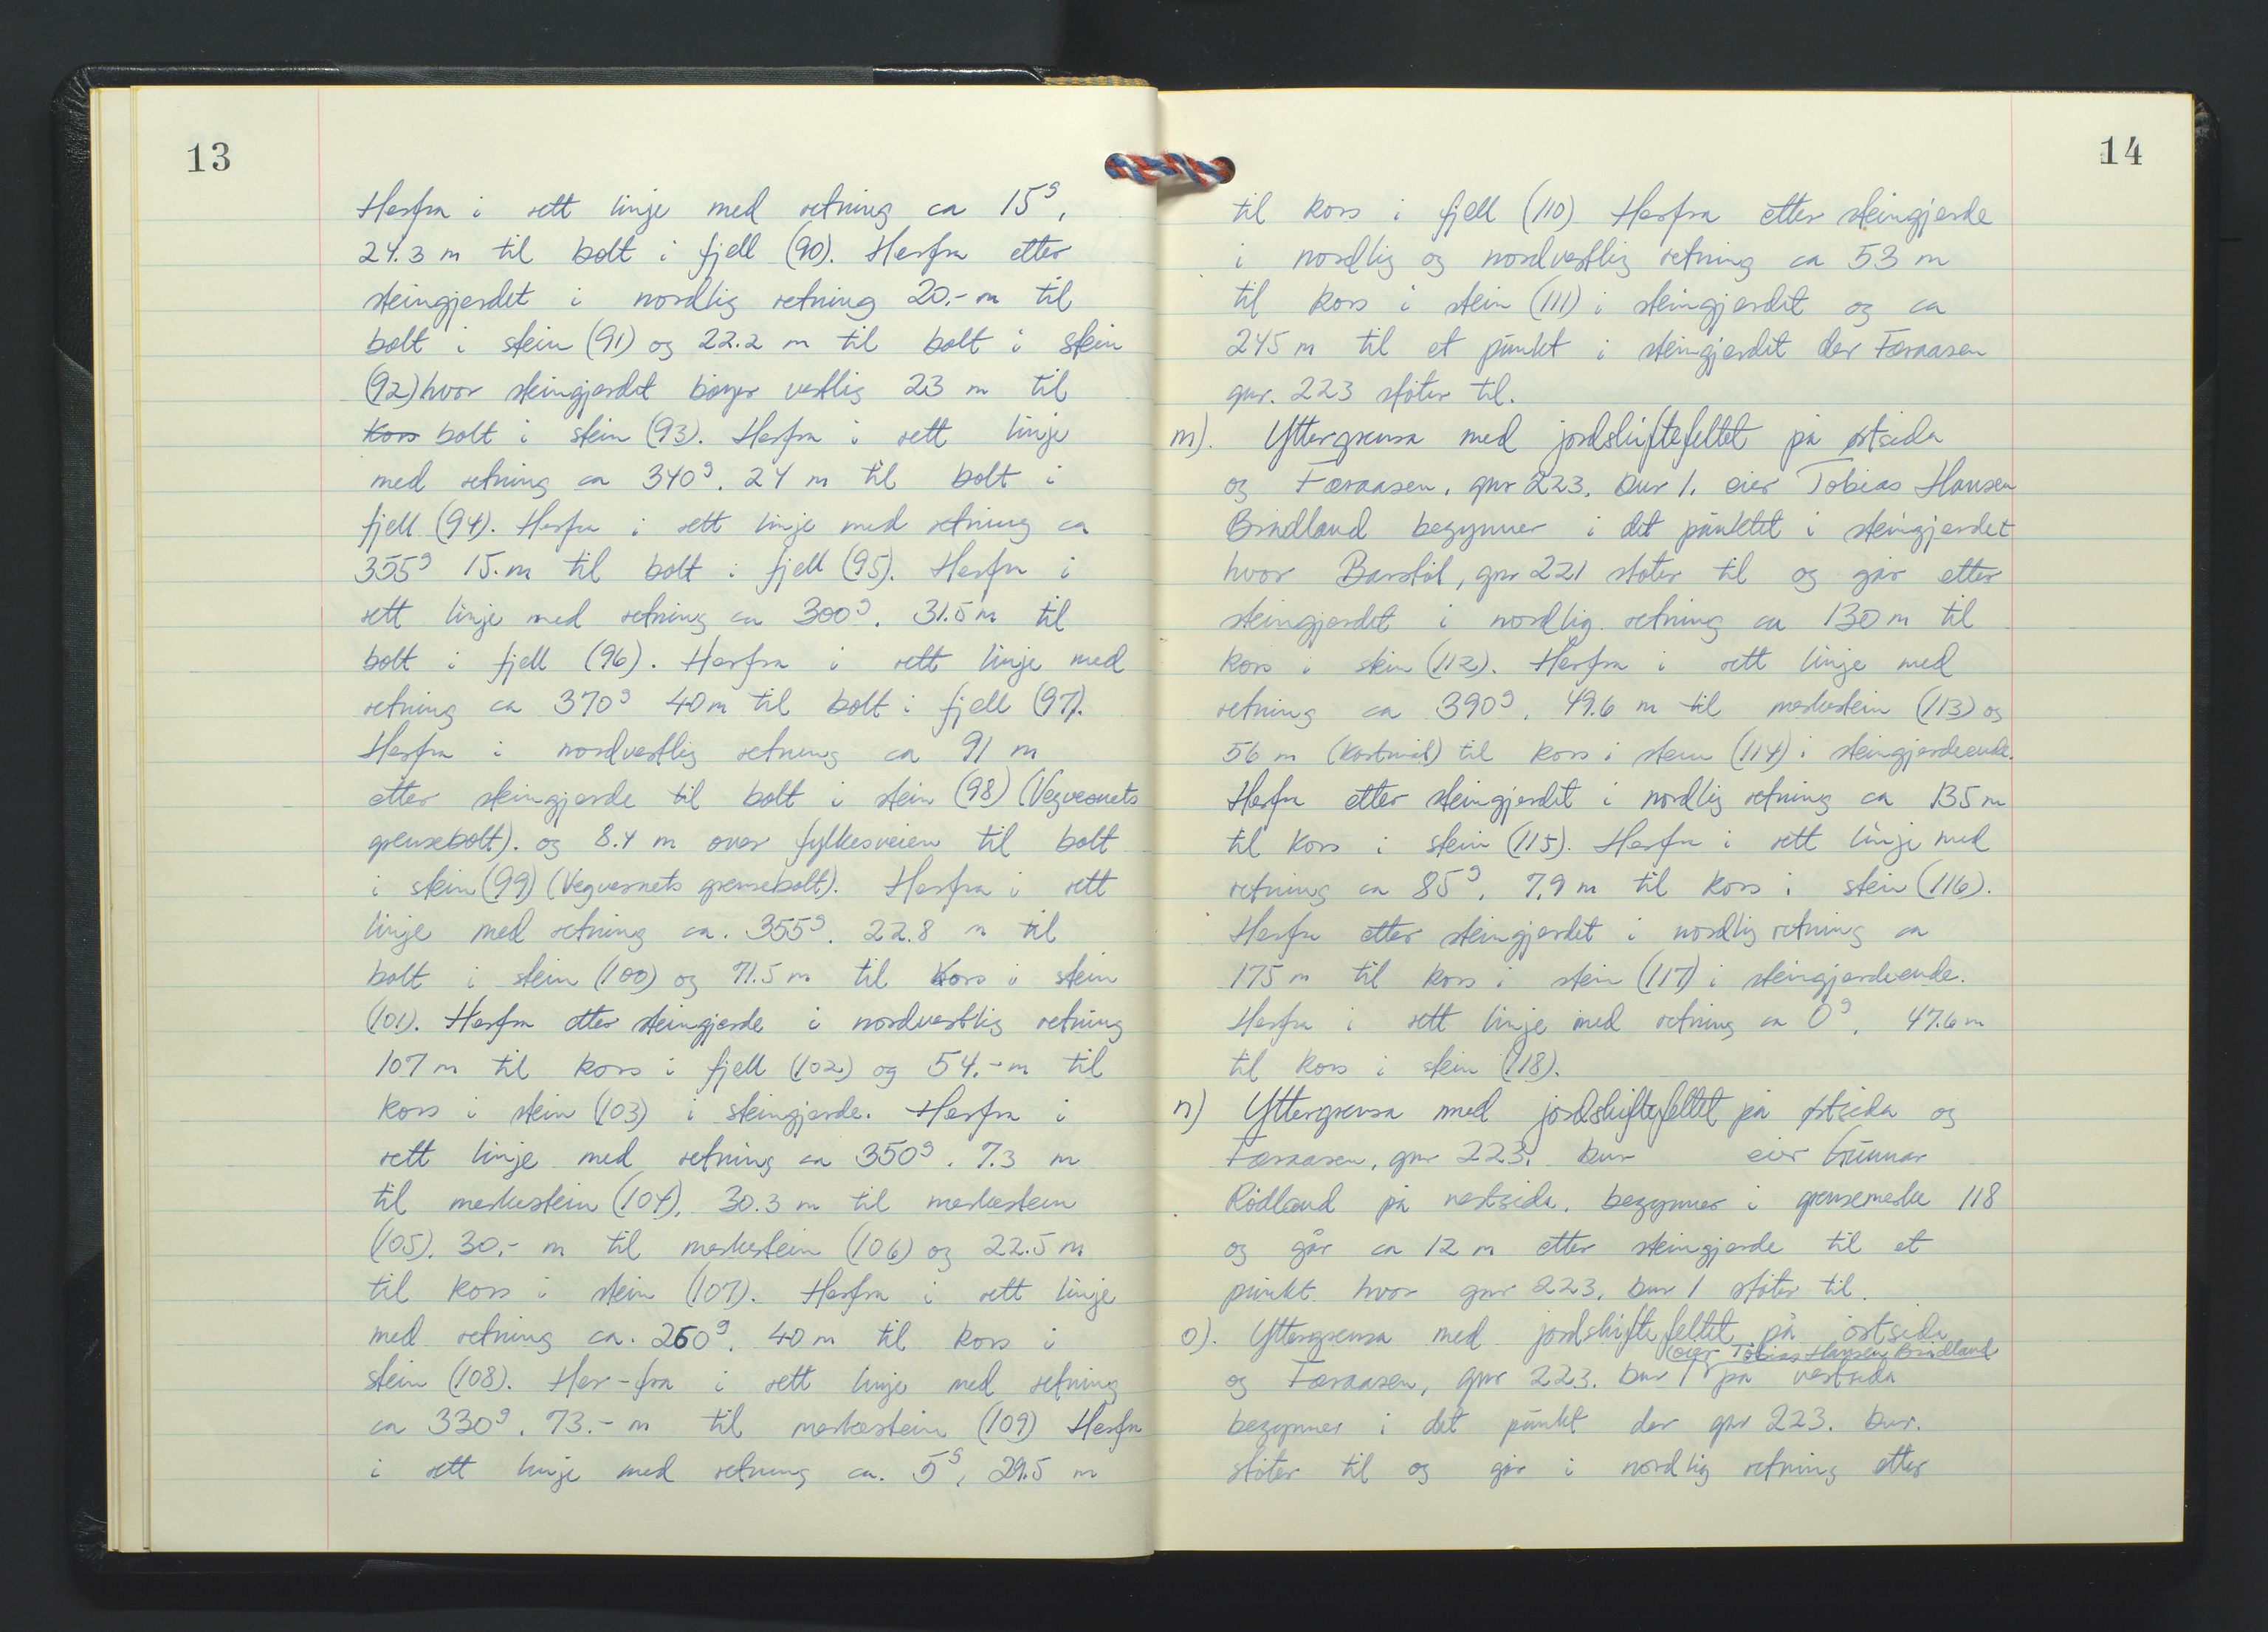 13
Herfra i rett linje med retning ca 15g,
24.3 m til bolt i fjell (90). Herfra etter
steingjerdet i nordlig retning 20.- m til
bolt i stein (91) og 22.2 m til bolt i stein
(92) hvor steingjerdet bøyer vestlig 23 m til
Kors bolt i stein (93). Herfra i rett linje
med retning ca 340g, 24 m til bolt i
fjell (94). Herfra i rett linje med retning ca
355g 15.m til bolt i fjell (95). Herfra i
rett linje med retning ca 300g, 31.5 m til
bolt i fjell (96). Herfra i rett linje med
retning ca 370g 40 m til bolt i fjell (97).
Herfra i nordvestlig retning ca 91 m
etter steingjerde til bolt i stein (98) (Vegvesnets
grensebolt). og 8.4 m over fylkesveien til bolt
i stein (99) (Vegvesnets grensebolt). Herfra i rett
linje med retning ca. 355g, 22.8 m til
bolt i stein (100) og 71.5 m til Kors i stein
(101). Herfra etter steingjerde i nordvestlig retning
107 m til kors i fjell (102) og 54.- m til
kors i stein (103) i steingjerde. Herfra i
rett linje med retning ca 350g, 7.3 m
til merkestein (104), 30.3 m til merkestein
(105), 30.- m til merkestein (106) og 22.5 m
til kors i stein (107). Herfra i rett linje
med retning ca. 260g, 40 m til kors i
stein (108). Her-fra i rett linje med retning
ca 330g, 73.- m til merkestein (109) Herfra
i rett linje med retning ca. 5g, 29.5 m
14
til kors i fjell (110) Herfra etter steingjerde
i nordlig og nordvestlig retning ca 53 m
til kors i stein (111) i steingjerdet og ca
245 m til et punkt i steingjerdet der Færaasen
gnr. 223 støter til.
m). Yttergrensa med jordskiftefeltet på østsida
og Færaasen, gnr 223, bnr 1. eier Tobias Hansen
Brådland begynner i det punktet i steingjerdet
hvor Barstøl, gnr 221 støter til og går etter
steingjerdet i nordlig retning ca 130 m til
kors i stein (112). Herfra i rett linje med
retning ca 390g, 49.6 m til merkestein (113) og
56 m (kartmål) til kors i stein (114) i steingjerdeende.
Herfra etter steingjerdet i nordlig retning ca 135 m
til kors i stein (115). Herfra i rett linje med
retning ca 85g, 7.9 m til kors i stein (116).
Herfra etter steingjerdet i nordlig retning ca
175 m til kors i stein (117) i steingjerdeende.
Herfra i rett linje med retning ca 0g, 47.6 m
til kors i stein (118).
n) Yttergrensa med jordskiftefeltet på østsida og
Færaasen, gnr 223, bnr eier Gunnar
Rødland på vestsida, begynner i grensemerke 118
og går ca 12 m etter steingjerde til et
punkt hvor gnr 223, bnr 1 støter til.
o). Yttergrensa med jordskiftefeltet på østsida
eier Tobias Hansen Brådland
og Færaasen, gnr 223. bnr 1 på vestsida
begynner i det punkt der gnr 223. bnr.
støter til og går i nordlig retning etter